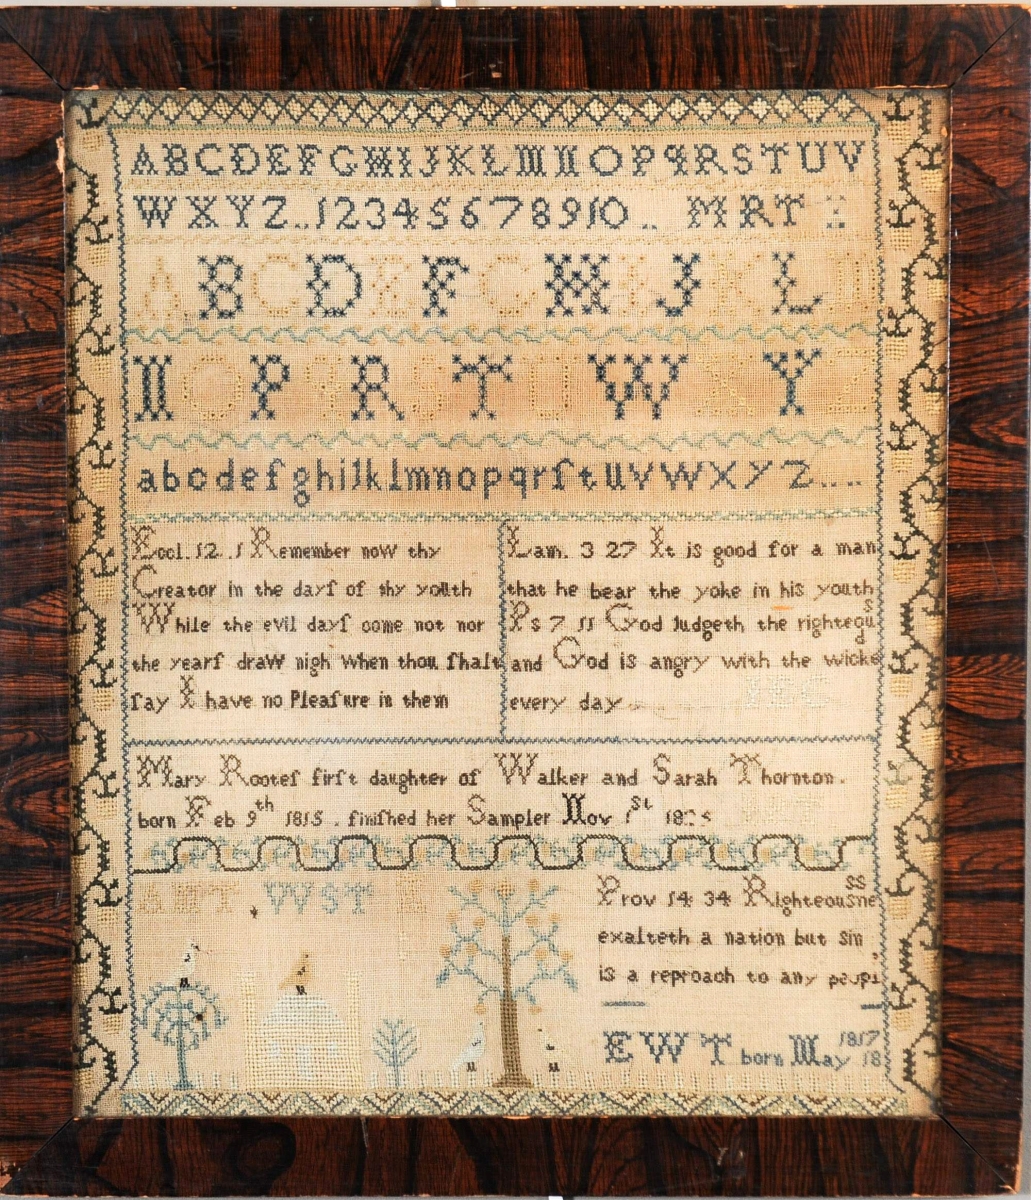 ABCDEFGHIJKLMNOPQRSTUV
WXYZ..12345678910.. MRT :
ABCDEFGHIJKLM
NOPQRSTUWXYZ
abcdefghiJklmnopqrſtuvwxyz....
Eccl. 12 .1 Remember now thy
Creator in the dayſ of thy youth
While the evil dayſ come not nor
the yearſ draw nigh when thou ſhalt
ſay I have no Pleaſure in them
Lam. 3 27 It is good for a man
that he bear the yoke in his youth
Ps 7 11 God Judgeth the righteous
and God is angry with the wicked
every day
Mary Rooteſ firſt daughter of Walker and Sarah Thornton.
born Feb 9th 1815 . finiſhed her Sampler Nov 1St
AMT WST
Prov 14 34 Righteousness
exalteth a nation but sin
is a reproach to any
EWT born May 18 1817